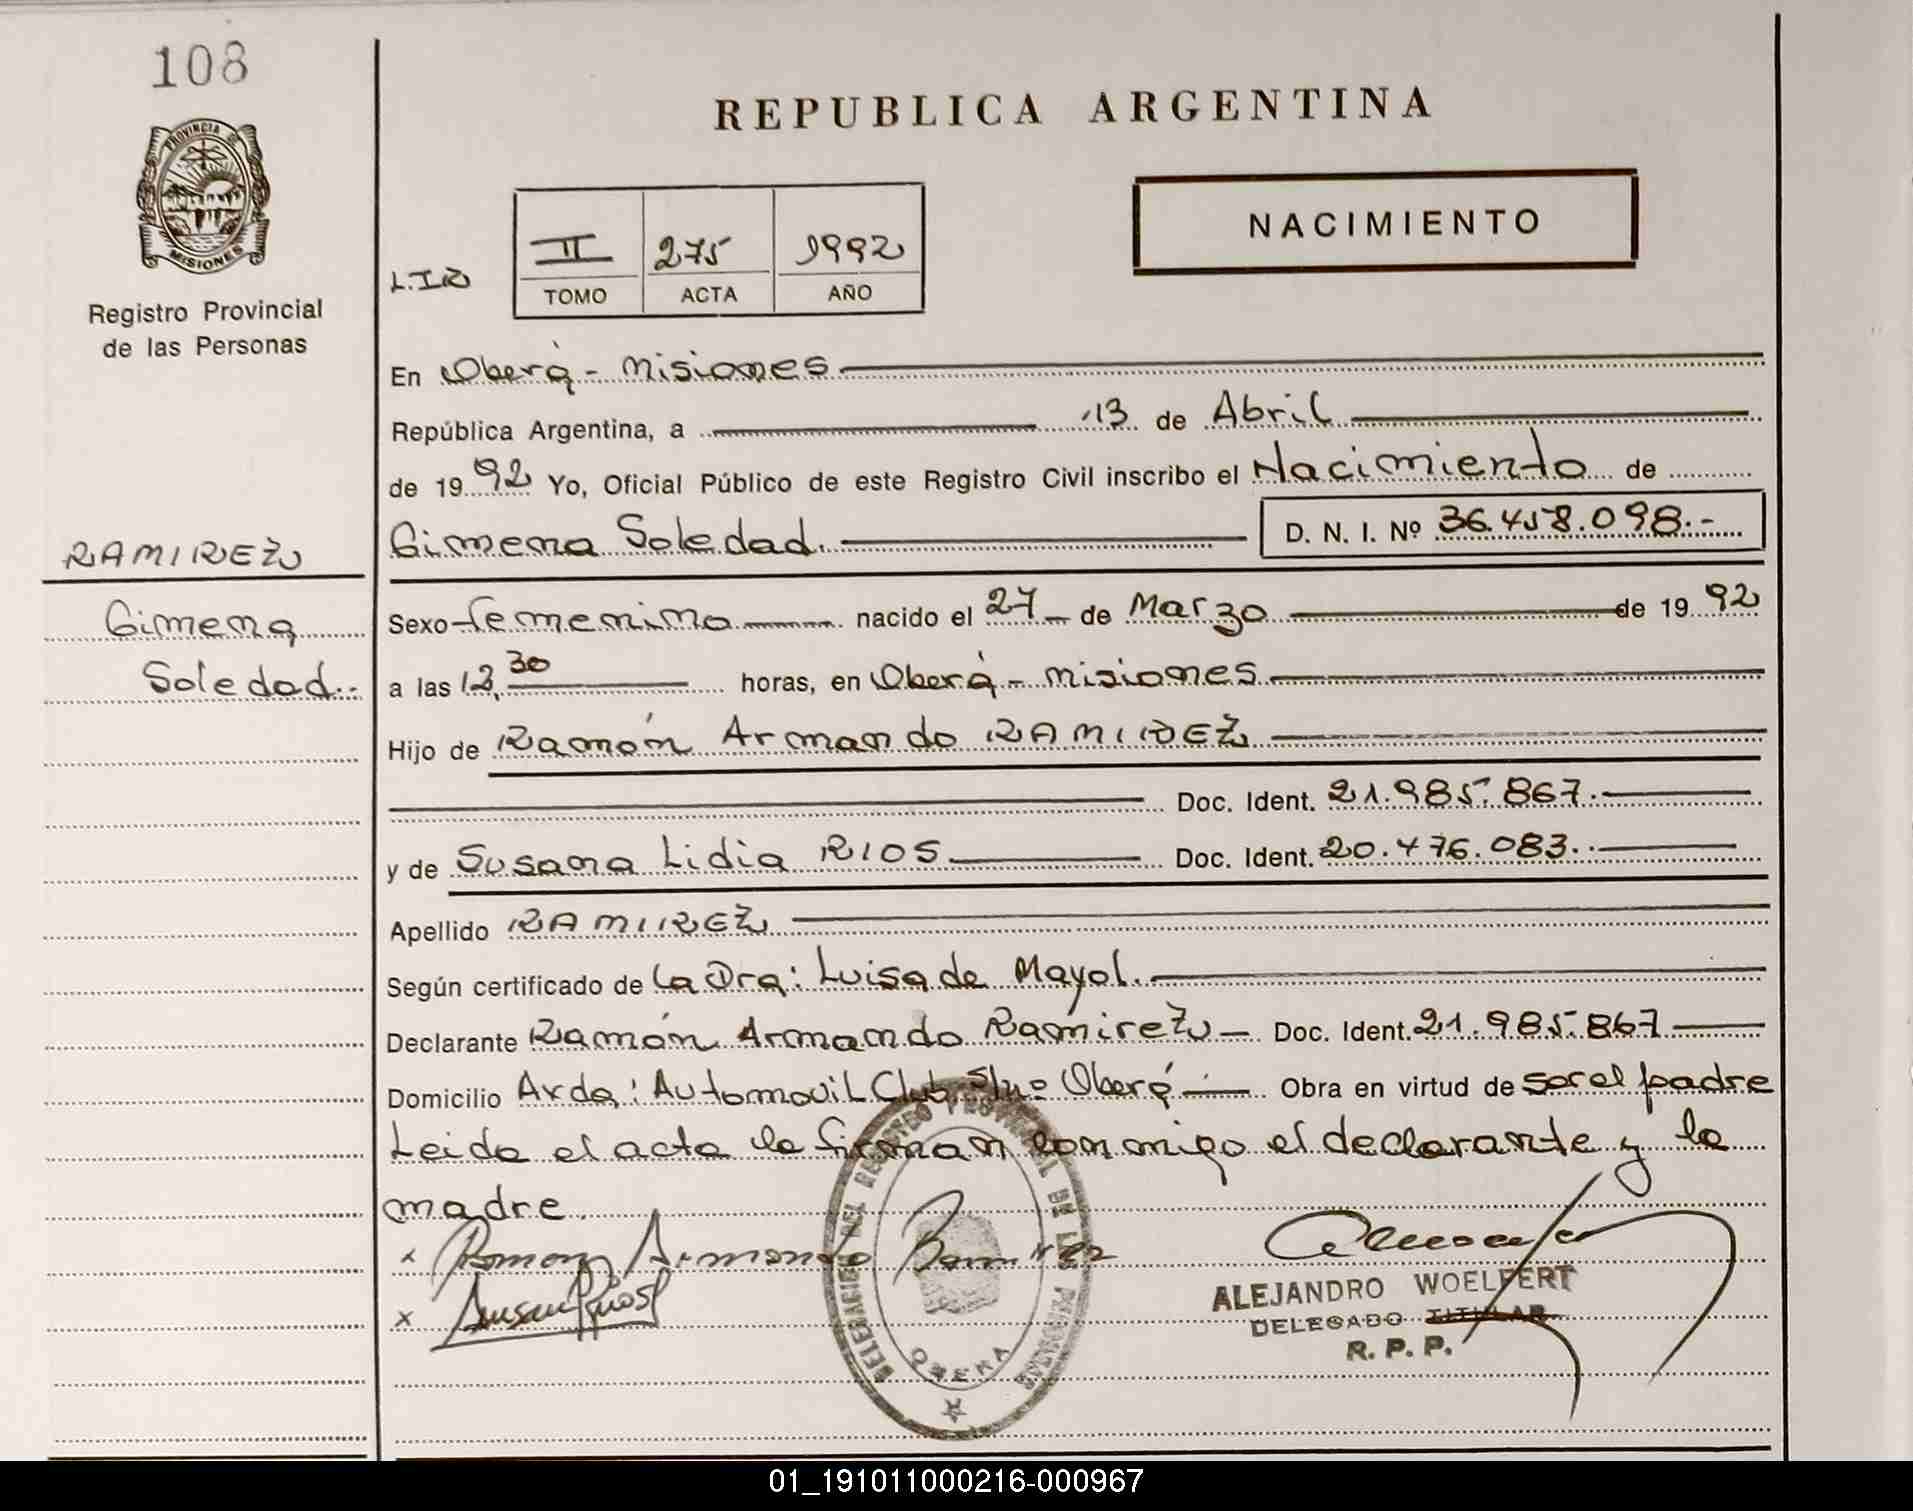 108
PROVINCIA DE
MISIONES
Registro Provincial
de las Personas
REPUBLICA ARGENTINA
NACIMIENTO
II 275 1992
TOMO ACTA AÑO
En Oberá - Misiones
República Argentina, a 13 de Abril
de 1992 Yo, Oficial Público de este Registro Civil inscribo el Nacimiento de
Gimena Soledad. D. N. I. Nº 36.458.098.-
RAMIREZ
Gimena
Soledad.-
Sexo femenino nacido el 27 de Marzo de 1992
a las 12,30 horas, en Oberá - Misiones
Hijo de Ramón Armando RAMIREZ
Doc. Ident. 21.985.867.
y de Susana Lidia RIOS Doc. Ident. 20.476.083.
Apellido RAMIREZ
Según certificado de la Dra: Luisa de Mayol.
Declarante Ramón Armando Ramirez Doc. Ident. 21.985.867
Domicilio Avda: Automovil Club S/nº Oberá Obra en virtud de ser el padre
Leida el acta la firman conmigo el declarante y la
madre.
x Ramon Armando Ramirez
x
DELEGACION DEL REGISTRO PROVINCIAL DE LAS PERSONAS
OBERA
ALEJANDRO WOELFERT
DELEGADO TITULAR
R. P. P.
01_191011000216-000967